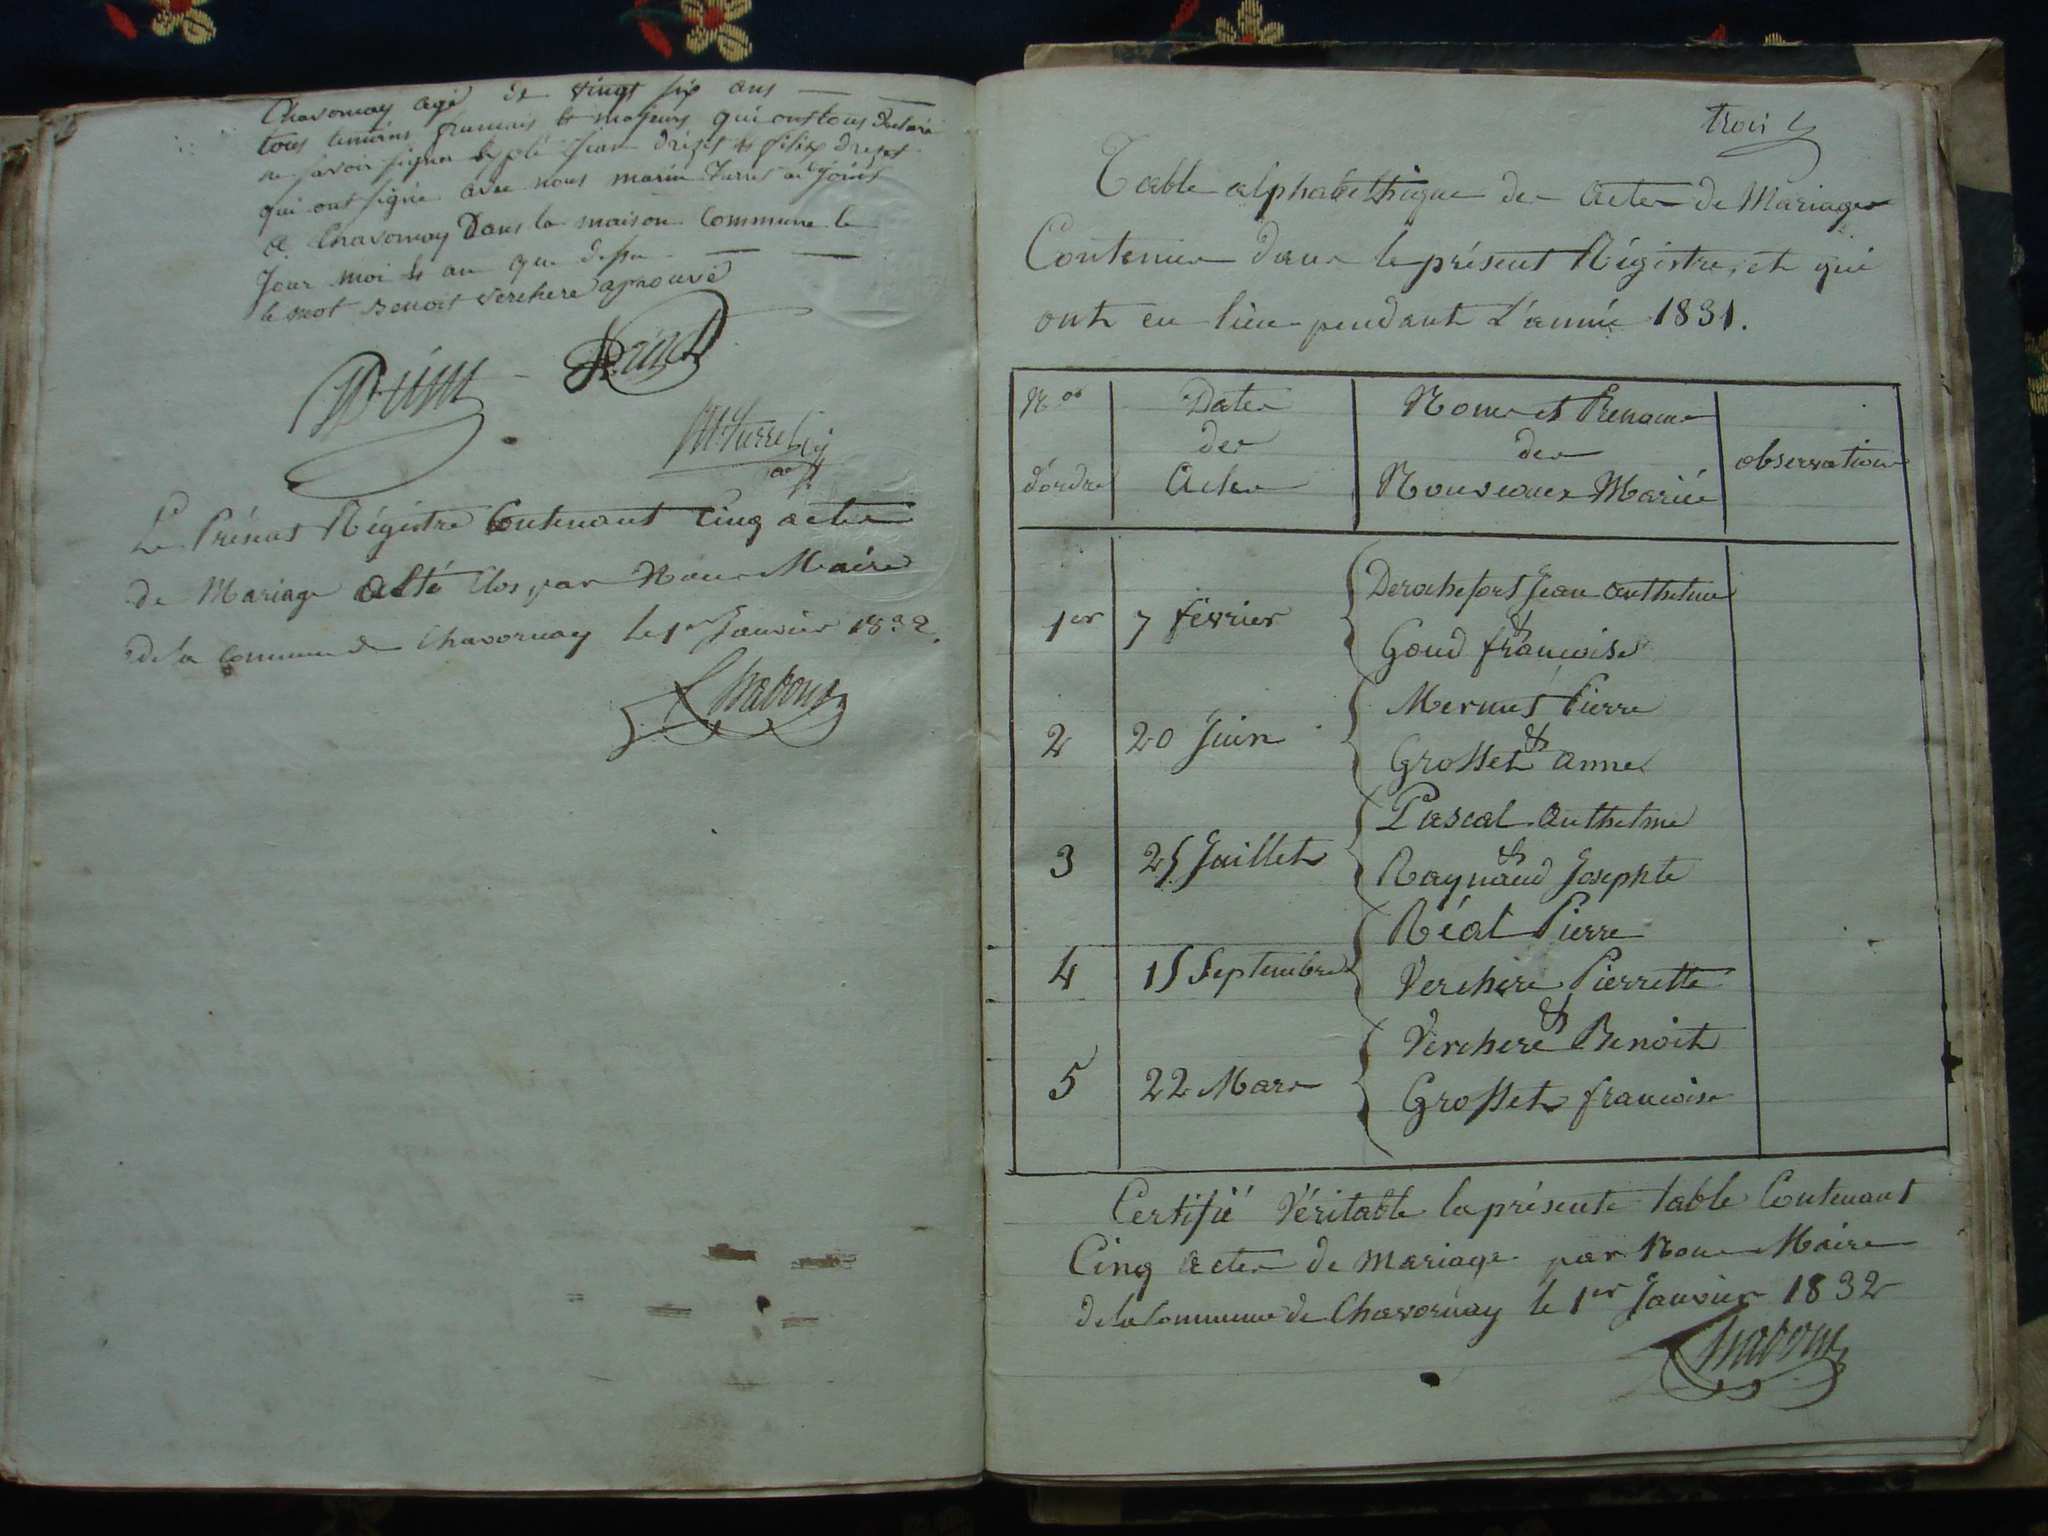 Chavornay agé de vingt six ans
tous temoins francais & majeurs qui ont tous declaré
ne savoir signer Jean & felix
qui ont signé avec nous marin adjoint
a Chavornay Dans la maison Commune le
Jour moi & an que dessu
le mot Benoit verchere aprouvé
Le Présent Régistre Contenant Cinq actes
de Mariage a été Clos par Nous Maire
de la Commune de Chavornay le 1er Janvier 1832.
trois
Table alphabethique des Actes de Mariages
Contenus dans le présent Régistre, et qui
ont eu lieu pendant L'année 1831.
Nos
d'ordre
Dates
des
Actes
Noms et Prenoms
des
Nouveaux Mariés
observations
1er 7 février Derochefort Jean anthelme
&
Goud francoise
2 20 Juin Mermet Pierre
&
Grosset anne
3 25 Juillet Pascal anthelme
&
Raynaud Josephte
4 15 Septembre Réal Pierre
Verchere Pierrette
&
5 22 Mars Verchere Benoit
Grosset francoise
Certifié Véritable la présente table Contenant
Cinq actes de Mariage par Nous Maire
de la Commune de Chavornay le 1er Janvier 1832